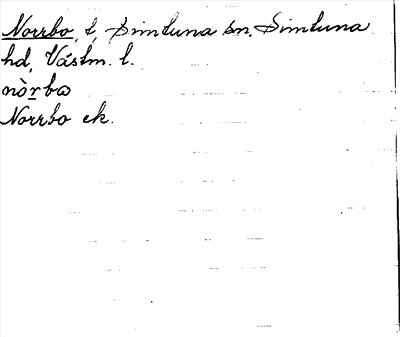 Norrbo, t, Simtuna sn, Simtuna
hd, Västm. l.
nòrbω
Norrbo ek.